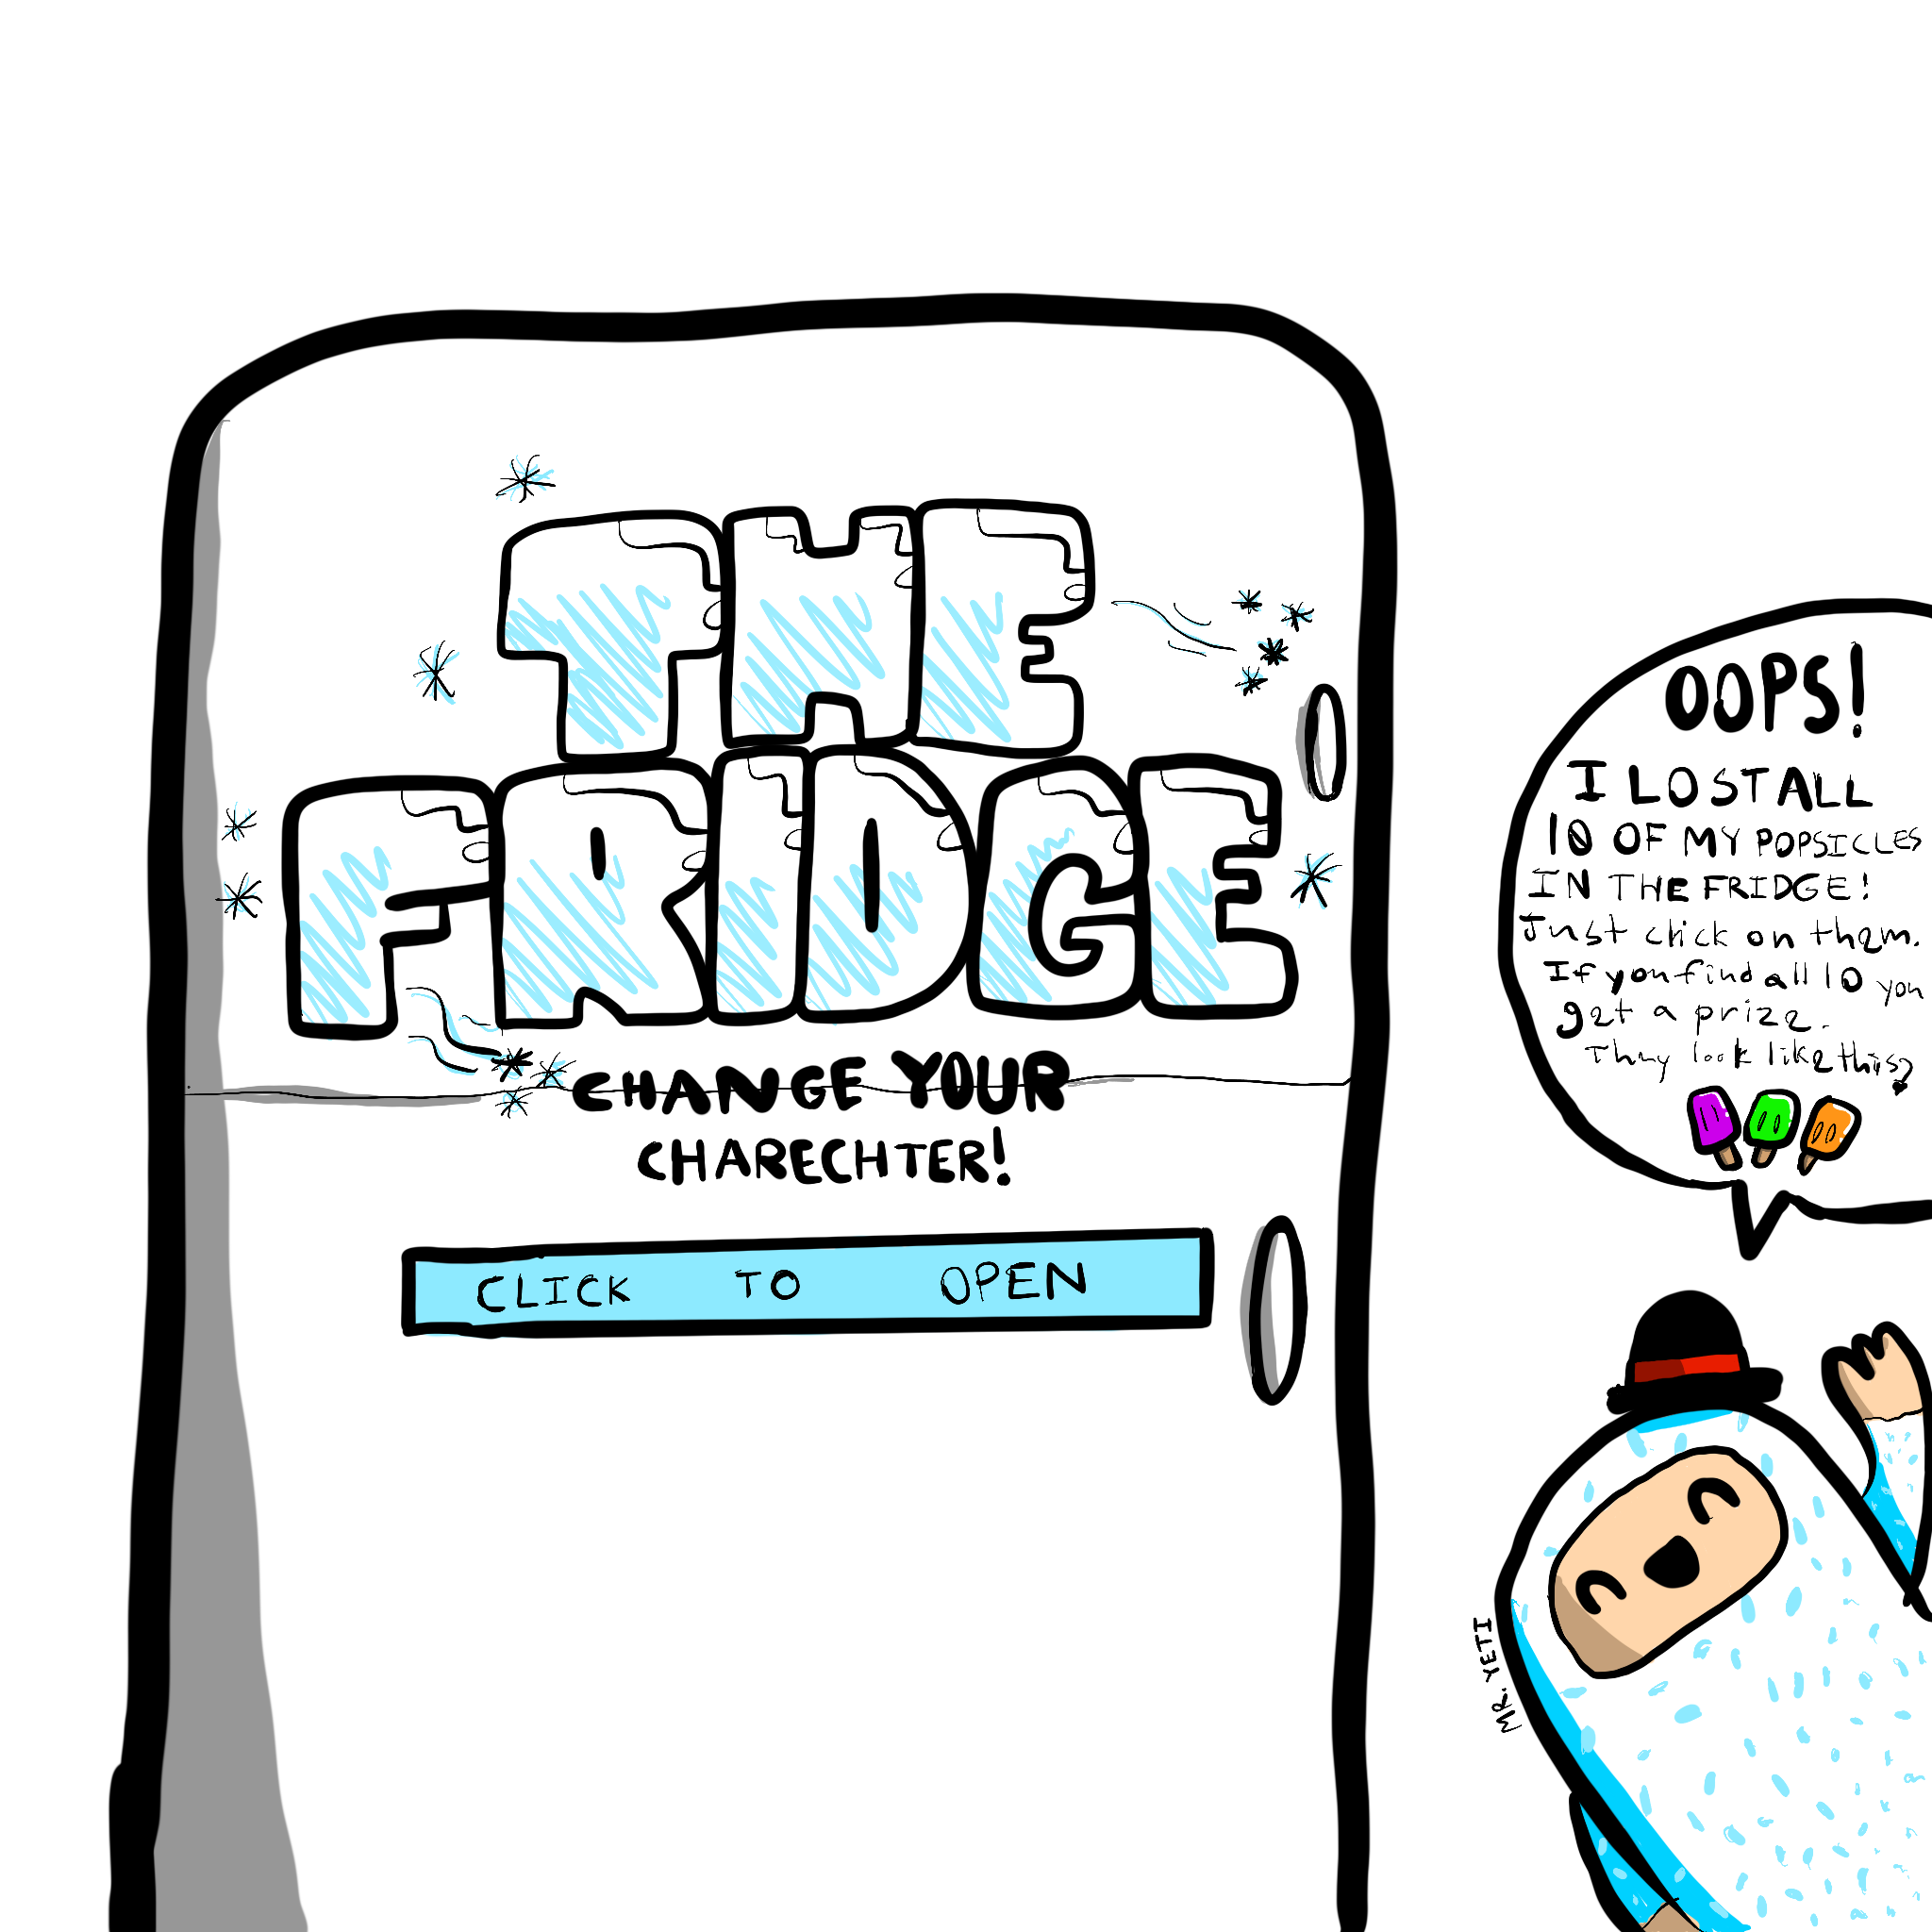 THE
FRIDGE
CHANGE YOUR
CHARECHTER!
CLICK TO OPEN
OOPS!
I LOST ALL
10 OF MY POPSICLES
IN THE FRIDGE!
Just click on them.
If you find all 10 you
get a prize.
They look like this
MR. YETI